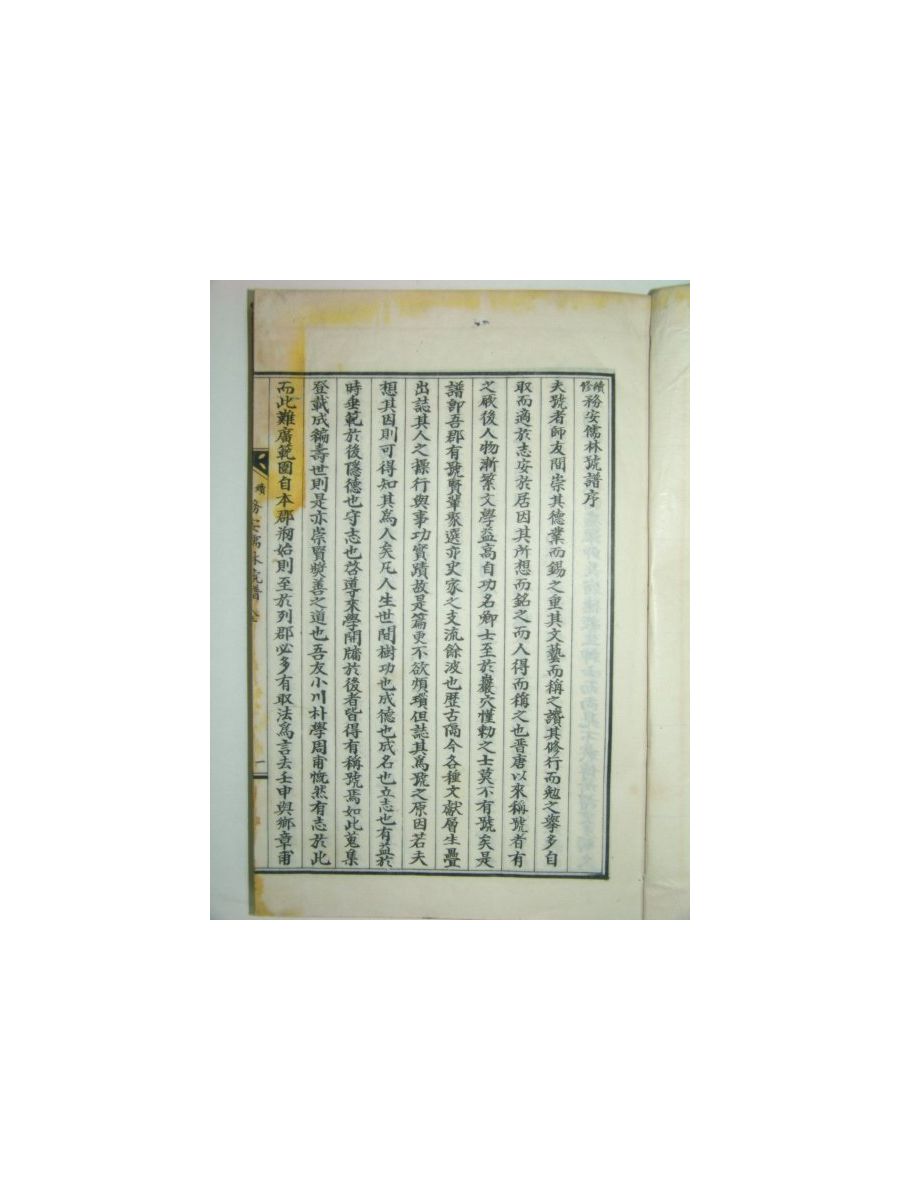 續修務安儒林號譜序
夫號者師友間崇其德業而錫之重其文藝而稱之讚其修行而勉之擧多自
取而適於志安於居因其所想而銘之而人得而稱之也晋唐以來稱號者有
之厥後人物漸繁文學益高自功名卿士至於巖穴慬勅之士莫不有號矣是
譜卽吾郡有號賢輩聚選亦史家之支流餘波也歷古隔今各種文献層生疊
出誌其人之操行與事功實蹟故是篇更不欲煩瓆但誌其爲號之原因若夫
想其因則可得知其爲人矣凡人生世間樹功也成德也成名也立志也有益於
時垂範於後隱德也守志也啓導來學開牖於後者皆得有稱號焉如此蒐集
登載成編壽世則是亦崇賢奬善之道也吾友小川朴學周甫慨然有志於此
而此難廣範圍自本郡刱始則至於列郡必多有取法爲言去壬申與鄕章甫
續務安儒林號譜 全 一